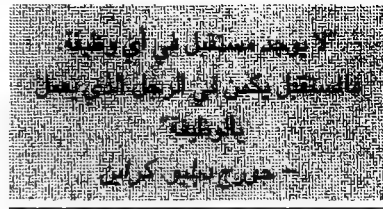 "لا يوجد مستقبل في أي وظيفة
فالمستقبل يكمن في الرجل الذي يعمل
بالوظيفة"
– جورج دبليو كراين